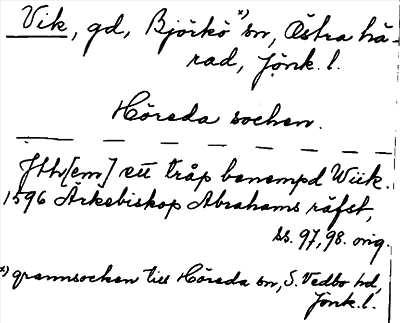 Vik, gd, Björkö x) sn, Östra hä-
rad, Jönk. l.
Höreda socken.
Jtt[em] ett tråp benempd Wiik.
1596 Ärkebiskop Abrahams räfst,
ss. 97, 98. orig.
x) grannsocken till Höreda sn, S. Vedbo hd,
Jönk. l.